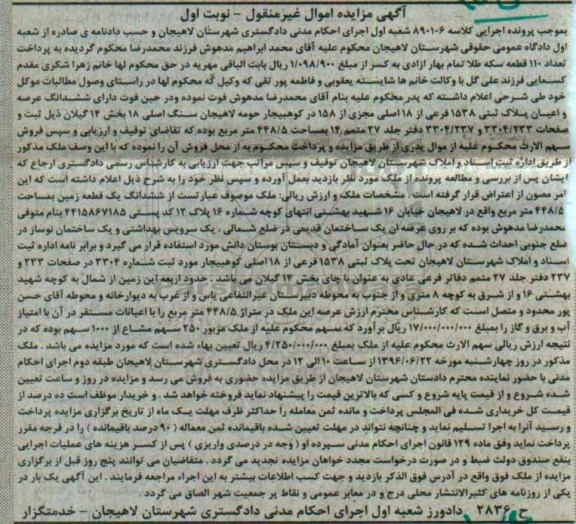 آگهی مزایده اموال غیرمنقول - نوبت اول
بموجب پرونده اجرایی کلاسه ۸۹۰۱۰۶ شعبه اول اجرای احکام مدنی دادگستری شهرستان لاهیجان و حسب دادنامه ی صادره از شعبه
اول دادگاه عمومی حقوقی شهرستان لاهیجان محکوم علیه آقای محمد ابراهیم مدهوش فرزند محمدرضا محکوم گردیده به پرداخت
تعداد ۱۱۰ قطعه سکه طلا تمام بهار آزادی به کسر از مبلغ ۱/۰۹۸/۹۰۰ ریال بابت الباقی مهریه در حق محکوم لها خانم زهرا شکری مقدم
کسمایی فرزند علی گل با وکالت خانم ها شایسته یعقوبی و فاطمه پور تقی که وکیل گه محکوم لها در راستای وصول مطالبات موکل
خود طی شرحی اعلام داشته که پدر محکوم علیه بنام آقای محمدرضا مدهوش فوت نموده ودر حین فوت دارای ششدانگ عرصه
و اعیان پلاک ثبتی ۱۵۳۸ فرعی از ۱۸ اصلی مجزی از ۱۵۸ در کوهبیجار حومه لاهیجان سنگ اصلی ۱۸ بخش ۱۴ گیلان ذیل ثبت و
صفحات ۳۳۰۴/۲۳۳ و ۳۳۰۴/۲۳۷ دفتر جلد ۲۷ متمم ۱۴ بمساحت ۴۴۸/۵ متر مربع بوده که تقاضای توقیف و ارزیابی و سپس فروش
سهم الارث محکوم علیه از موال پدری از طریق مزایده و پرداخت محکوم به از محل فروش آن را نموده که با این وصف ملک مذکور
از طریق اداره ثبت اسناد و املاک شهرستان لاهیجان توقیف و سپس مراتب جهت ارزیابی به کارشناس رسمی دادگستری ارجاع که
ایشان پس از بررسی و مطالعه پرونده از ملک مورد نظر بازدید بعمل آورده و سپس نظر خود را به شرح ذیل اعلام داشته است که این
امر مصون از اعتراض قرار گرفته است. مشخصات ملک و ارزش ریالی: ملک موصوف عبارتست از ششدانگ یک قطعه زمین بمساحت
۴۴۸/۵ متر مربع واقع در لاهیجان خیابان ۱۶ شهید بهشتی انتهای کوچه شماره ۱۶ پلاک ۱۲ کد پستی ۴۴۱۵۸۶۷۱۸۵ بنام متوفی
محمدرضا مدهوش بوده که بر روی عرصه ان یک ساختمان قدیمی در ضلع شمالی ، یک سرویس بهداشتی و یک ساختمان نوساز در
ضلع جنوبی احداث شده که در حال حاضر بعنوان آمادگی و دبستان بوستان دانش مورد استفاده قرار می گیرد و برابر نامه اداره ثبت
اسناد و املاک شهرستان لاهیجان تحت پلاک ثبتی ۱۵۳۸ فرعی از ۱۸ اصلی کوهبیجار مورد ثبت شماره ۳۳۰۴ در صفحات ۲۳۳ و
۲۳۷ دفتر جلد ۲۷ متمم دفاتر فرعی عادی به عنوان با جای بخش ۱۴ گیلان می باشد . حدود اربعه این زمین از شمال به کوچه شهید
بهشتی ۱۶ و از شرق به کوچه ۸ متری و از جنوب به محوطه دبیرستان غیرانتفاعی یاس و از غرب به دیوارخانه و محوطه آقای حسن
پور محدود و متصل است که کارشناس محترم ارزش عرصه این ملک در متراژ ۴۴۸/۵ متر مربع را با اعیانات مستقر در آن با امتیاز
آب و برق و گاز را بمبلغ ۱۷/۰۰۰/۰۰۰/۰۰۰ ریال بر آورد که سهم محکوم علیه از ملک مزبور ۲۵۰ سهم مشاع از ۱۰۰۰ سهم بوده که در
نتیجه ارزش ریالی سهم الارث محکوم علیه از ملک بمبلغ ۴/۲۵۰/۰۰۰/۰۰۰ ریال تعیین بهاء شده است که مورد مزایده می باشد . ملک
مذکور در روز چهارشنبه مورخه ۱۳۹۶/۰۶/۲۲ از ساعت ۱۰ الی ۱۲ در محل دادگستری شهرستان لاهیجان طبقه دوم اجرای احکام
مدنی با حضور نماینده محترم دادستان شهرستان لاهیجان از طریق مزایده حضوری به فروش می رسد و مزایده در روز و ساعت تعیین
شده شروع و از قیمت پایه شروع و کسی که بالاترین قیمت را پیشنهاد نماید فروخته خواهد شد . و خریدار موظف است ده درصد از
قیمت کل خریداری شده فی المجلس پرداخت و مانده ثمن معامله را حداکثر ظرف مهلت یک ماه از تاریخ برگزاری مزایده پرداخت
و رسید آنرا به اجرا تسلیم نماید و چنانچه نتواند در مهلت تعیین شده باقیمانده ثمن معماله ( ۹۰ درصد باقیمانده ) را در فرجه مقرر
پرداخت نماید وفق ماده ۱۲۹ قانون اجرای احکام مدنی سپرده او ( وجه در درصدی واریزی ) پس از کسر هزینه های عملیات اجرایی
بنفع صندوق دولت ضبط و در صورت درخواست مجدد خواهان مزایده تجدید می گردد . متقاضیان می توانند پنج روز قبل از برگزاری
مزایده از ملک فوق واقع در آدرس فوق الذکر بازدید و جهت کسب اطلاعات بیشتر به این اجراء مراجعه فرمایند . این آگهی یک بار در
یکی از روزنامه های کثیرالانتشار محلی درج و در معابر عمومی و نقاط پر جمعیت شهر الصاق می گردد .
ح ۲۸۳۶ دادورز شعبه اول اجرای احکام مدنی دادگستری شهرستان لاهیجان - خدمتگزار